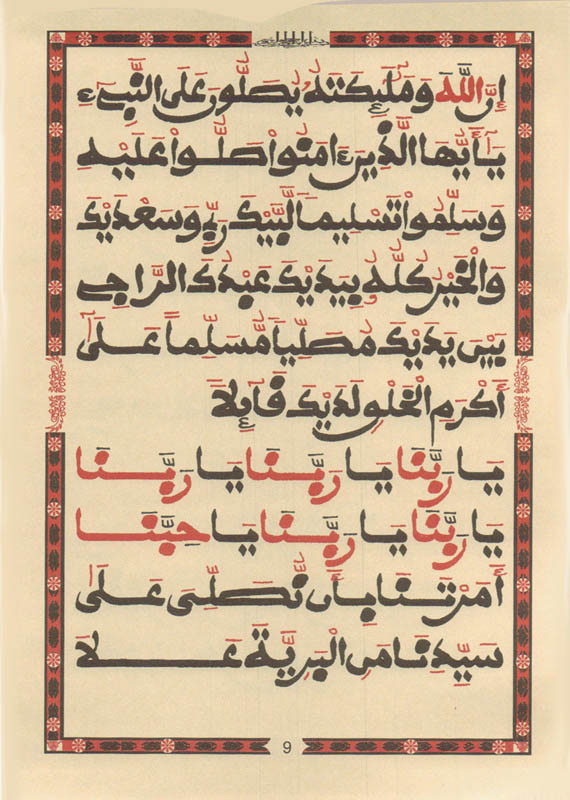 إِنَّ اللَّهَ وَمَلَٰئِكَتَهُ يُصَلُّونَ عَلَى النَّبِيءِ
يَٰأَيُّهَا الَّذِينَ ءَامَنُوا صَلُّوا عَلَيْهِ
وَسَلِّمُوا تَسْلِيمًا لَبَّيْكَ رَبِّ وَسَعْدَيْكَ
وَالْخَيْرُ كُلُّهُ بِيَدَيْكَ عَبْدُكَ الرَّاجِي
بَيْنَ يَدَيْكَ مُصَلِّيًا مُسَلِّمًا عَلَى
أَكْرَمِ الْخَلْقِ لَدَيْكَ قَآئِلًا
يَا رَبَّنَا يَا رَبَّنَا يَا رَبَّنَا
يَا رَبَّنَا يَا رَبَّنَا يَا حِبَّنَا
أَمَرْتَنَا بِأَن نُّصَلِّيَ عَلَى
سَيِّدِنَا مَنِ الْبَرِيَّةَ عَلَا
9